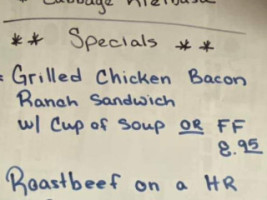 * Cabbage Kielbasa
** Specials **
Grilled Chicken Bacon
Ranch Sandwich
w/ Cup of Soup OR FF
8.95
Roastbeef on a HR